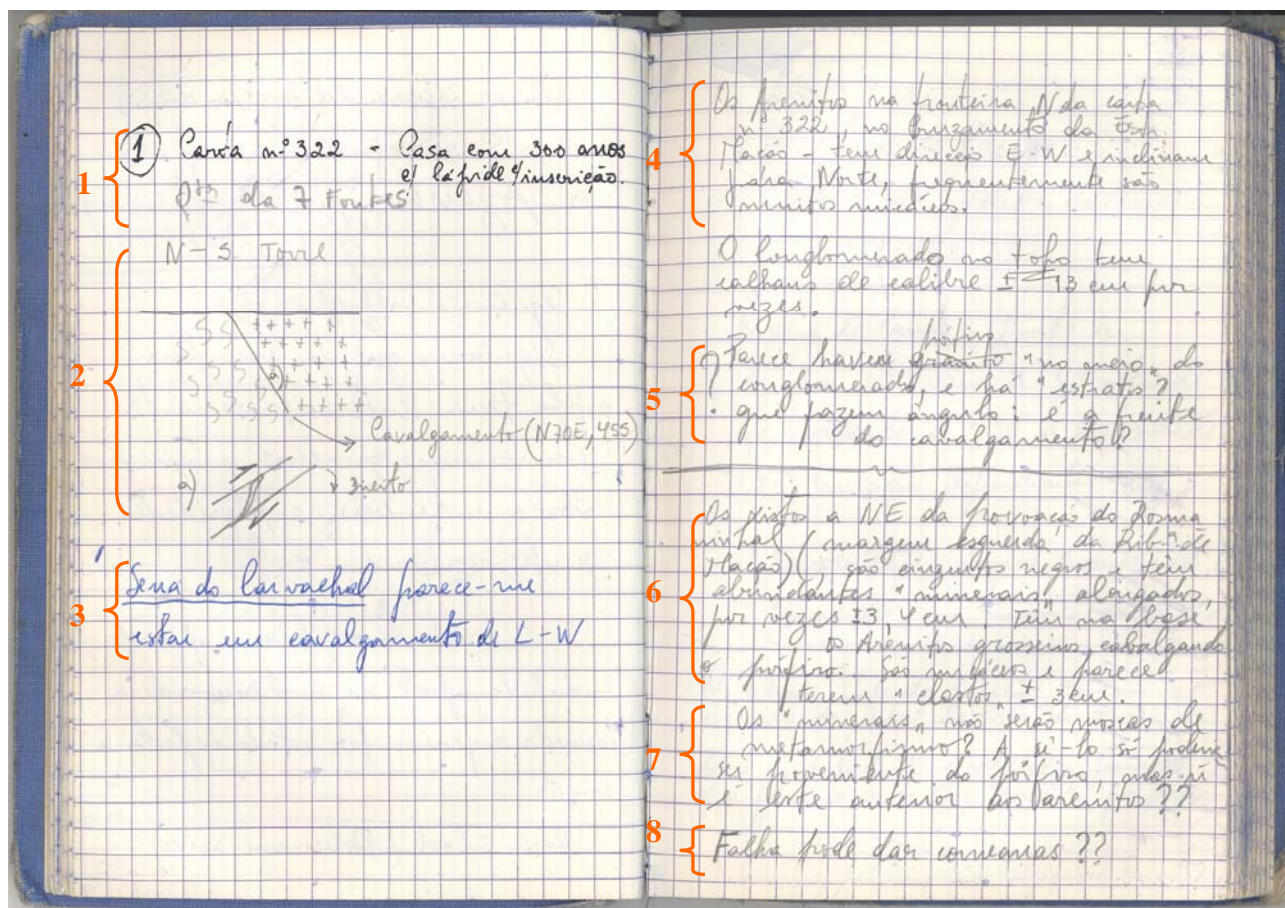 1
① Carta nº 322 - Casa com 300 anos
c/ lápide c/ inscrição.
Qtª da 7 Fontes
2
N-S Tovil
a)
Cavalgamento (N70E, 45S)
a)
3
Serra do Carvalhal parece-me
estar em cavalgamento de L-W
4
Os arenitos na fronteira N da carta
nº 322, no cruzamento da
Mação - tem direcção E-W e inclinam
para Norte, frequentemente são
muitos micáceos.
O conglomerado no topo tem
calhaus de calibre ± 13 cm por
vezes.
5
pórfiro
? Parece haver granito "no meio" do
conglomerado, e há "estratos"?
que fazem ângulo: é a frente
do cavalgamento?
6
Os xistos a NE da povoação do Rosma
ninhal (margem esquerda da Ribª de
Mação) são cinzentos negros e têm
abundantes "minerais" alongados,
por vezes ±3, 4 cm. Têm na base
os Arenitos grosseiros, cavalgando
o pórfiro. São micáceos e parece
terem "clastos" ± 3 cm.
7
Os "minerais" não serão moscas de
metamorfismo? A sê-lo só podem
ser proveniente do pórfiro, mas ñ
é este anterior aos arenitos??
8
Falha pode dar corneanas ??